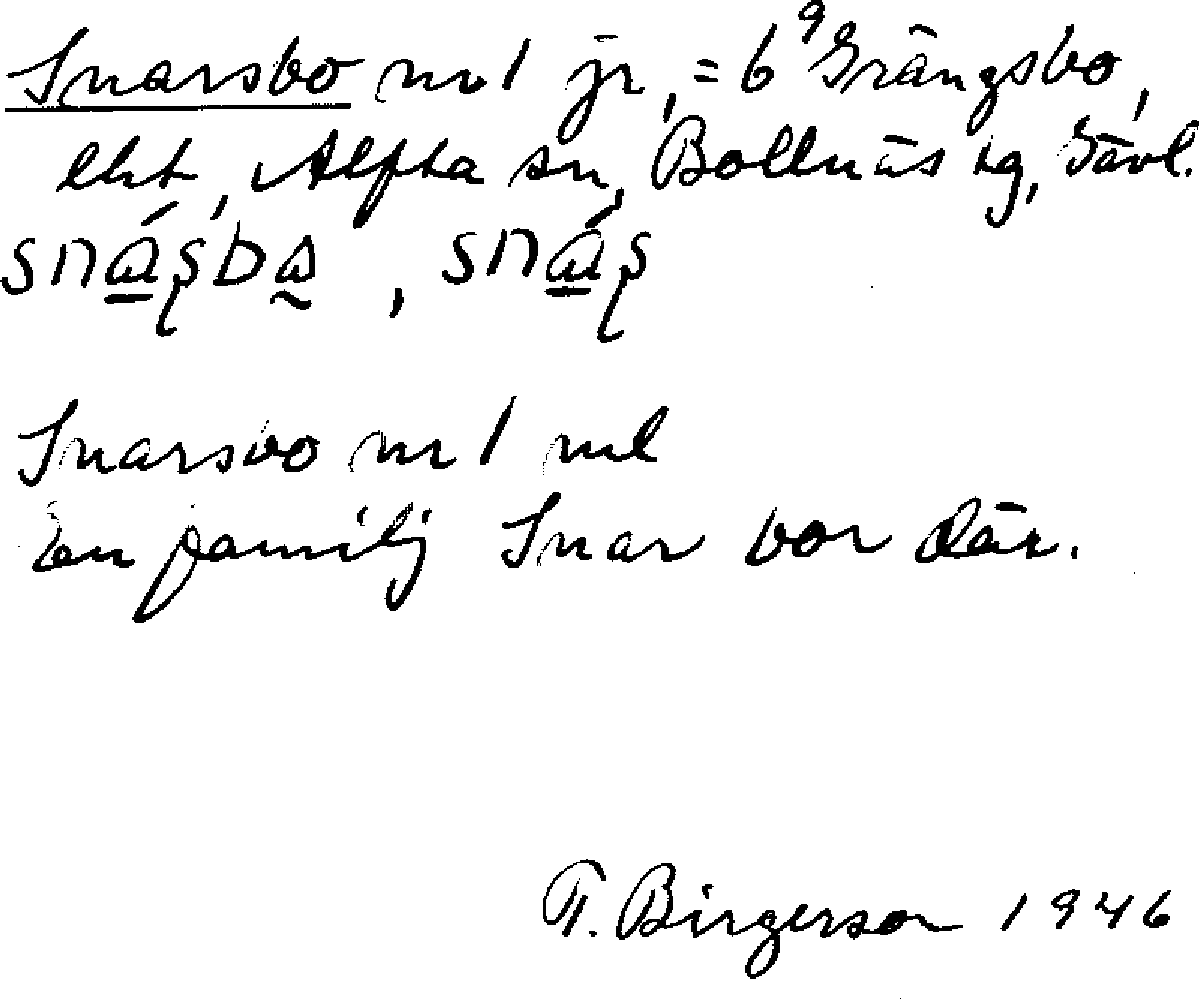 Snarsbo nr 1 jr, = 6⁹ Grängsbo,
eht, Alfta sn, Bollnäs tg, Gävl.
snáʂba, snáʂ
Snarsbo nr 1 ml
En familj Snar bor där.
T. Birgerson 1946